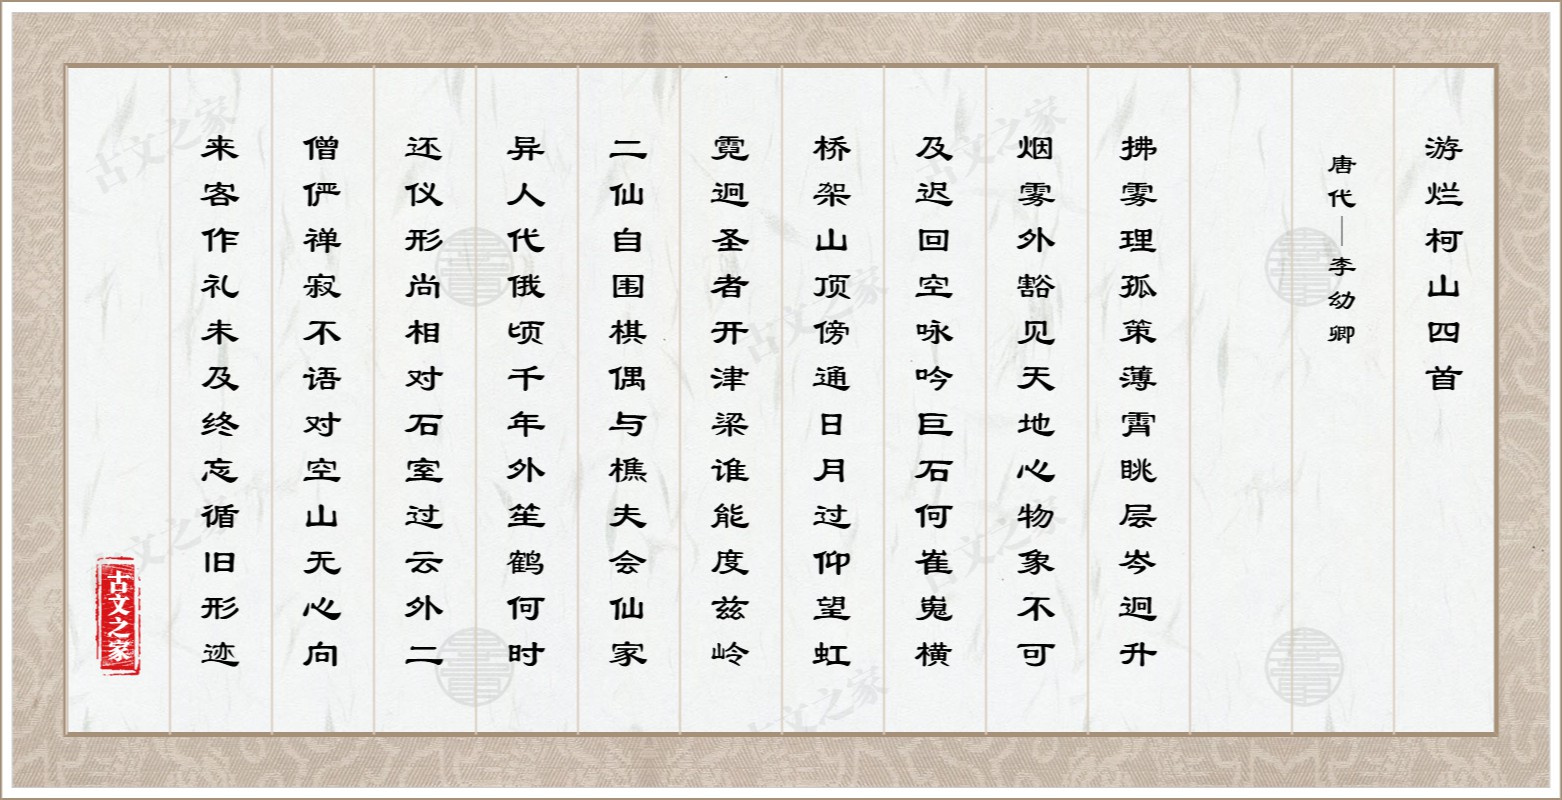 游烂柯山四首
唐代——李幼卿
拂雾理孤策薄霄眺层岑迥升
烟雾外豁见天地心物象不可
及迟回空咏吟巨石何崔嵬横
桥架山顶傍通日月过仰望虹
霓迥圣者开津梁谁能度兹岭
二仙自围棋偶与樵夫会仙家
异人代俄顷千年外笙鹤何时
还仪形尚相对石室过云外二
僧俨禅寂不语对空山无心向
来客作礼未及终忘循旧形迹
古文之家